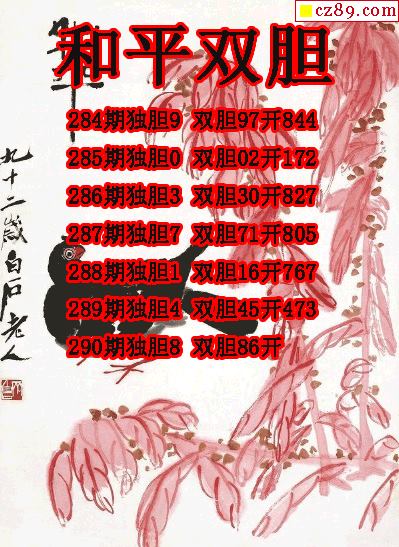 cz89.com
和平双胆
284期独胆9 双胆97开844
285期独胆0 双胆02开172
286期独胆3 双胆30开827
287期独胆7 双胆71开805
288期独胆1 双胆16开767
289期独胆4 双胆45开473
290期独胆8 双胆86开
九十二歲白石老人